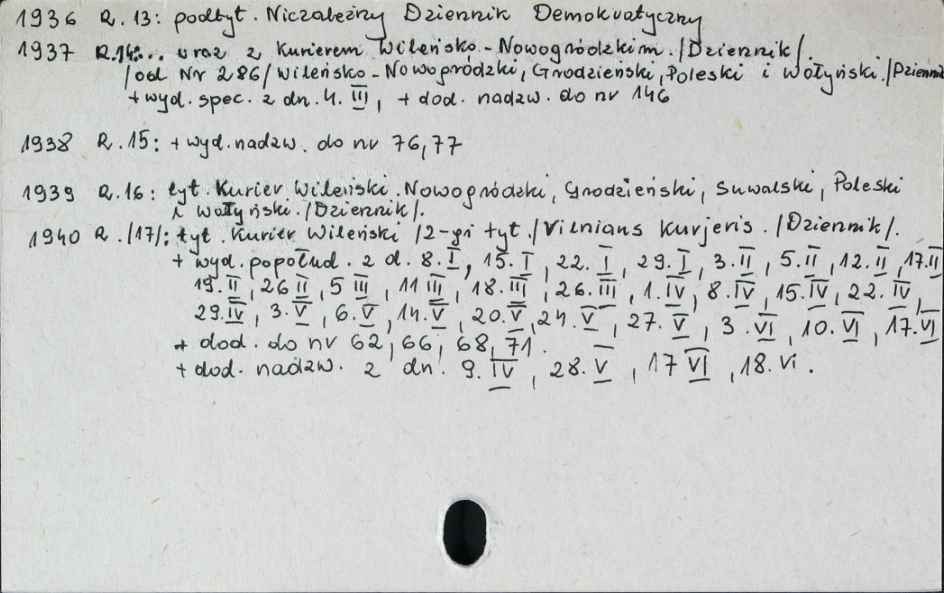 1936 R. 13: podtyt. Niezależny Dziennik Demokratyczny
1937 R.14:.. wraz z Kurierem Wileńsko-Nowogródzkim. /Dziennik/.
/od Nr 286/ Wileńsko-Nowogródzki, Grodzieński, Poleski i Wołyński. /Dziennik
+ wyd. spec. z dn. 4. III, + dod. nadzw. do nr 146
1938 R. 15: + wyd. nadzw. do nr 76,77
1939 R. 16: tyt. Kurier Wileński. Nowogródzki, Grodzieński, Suwalski, Poleski
i Wołyński. /Dziennik/.
1940 R. /17/: tyt. Kurier Wileński /2-gi tyt./ Vilnians Kurjeris. /Dziennik/.
+ wyd. popołud. z d. 8.I, 15.I, 22.I, 29.I, 3.II, 5.II, 12.II, 17.II
19.II, 26 II, 5 III, 11 III, 18.III, 26.III, 1.IV, 8.IV, 15.IV, 22.IV,
29.IV, 3.V, 6.V, 14.V, 20.V, 24.V, 27.V, 3.VI, 10.VI, 17.VI
+ dod. do nr 62, 66, 68, 71.
+ dod. nadzw. z dn. 9.IV, 28.V, 17 VI, 18.VI.